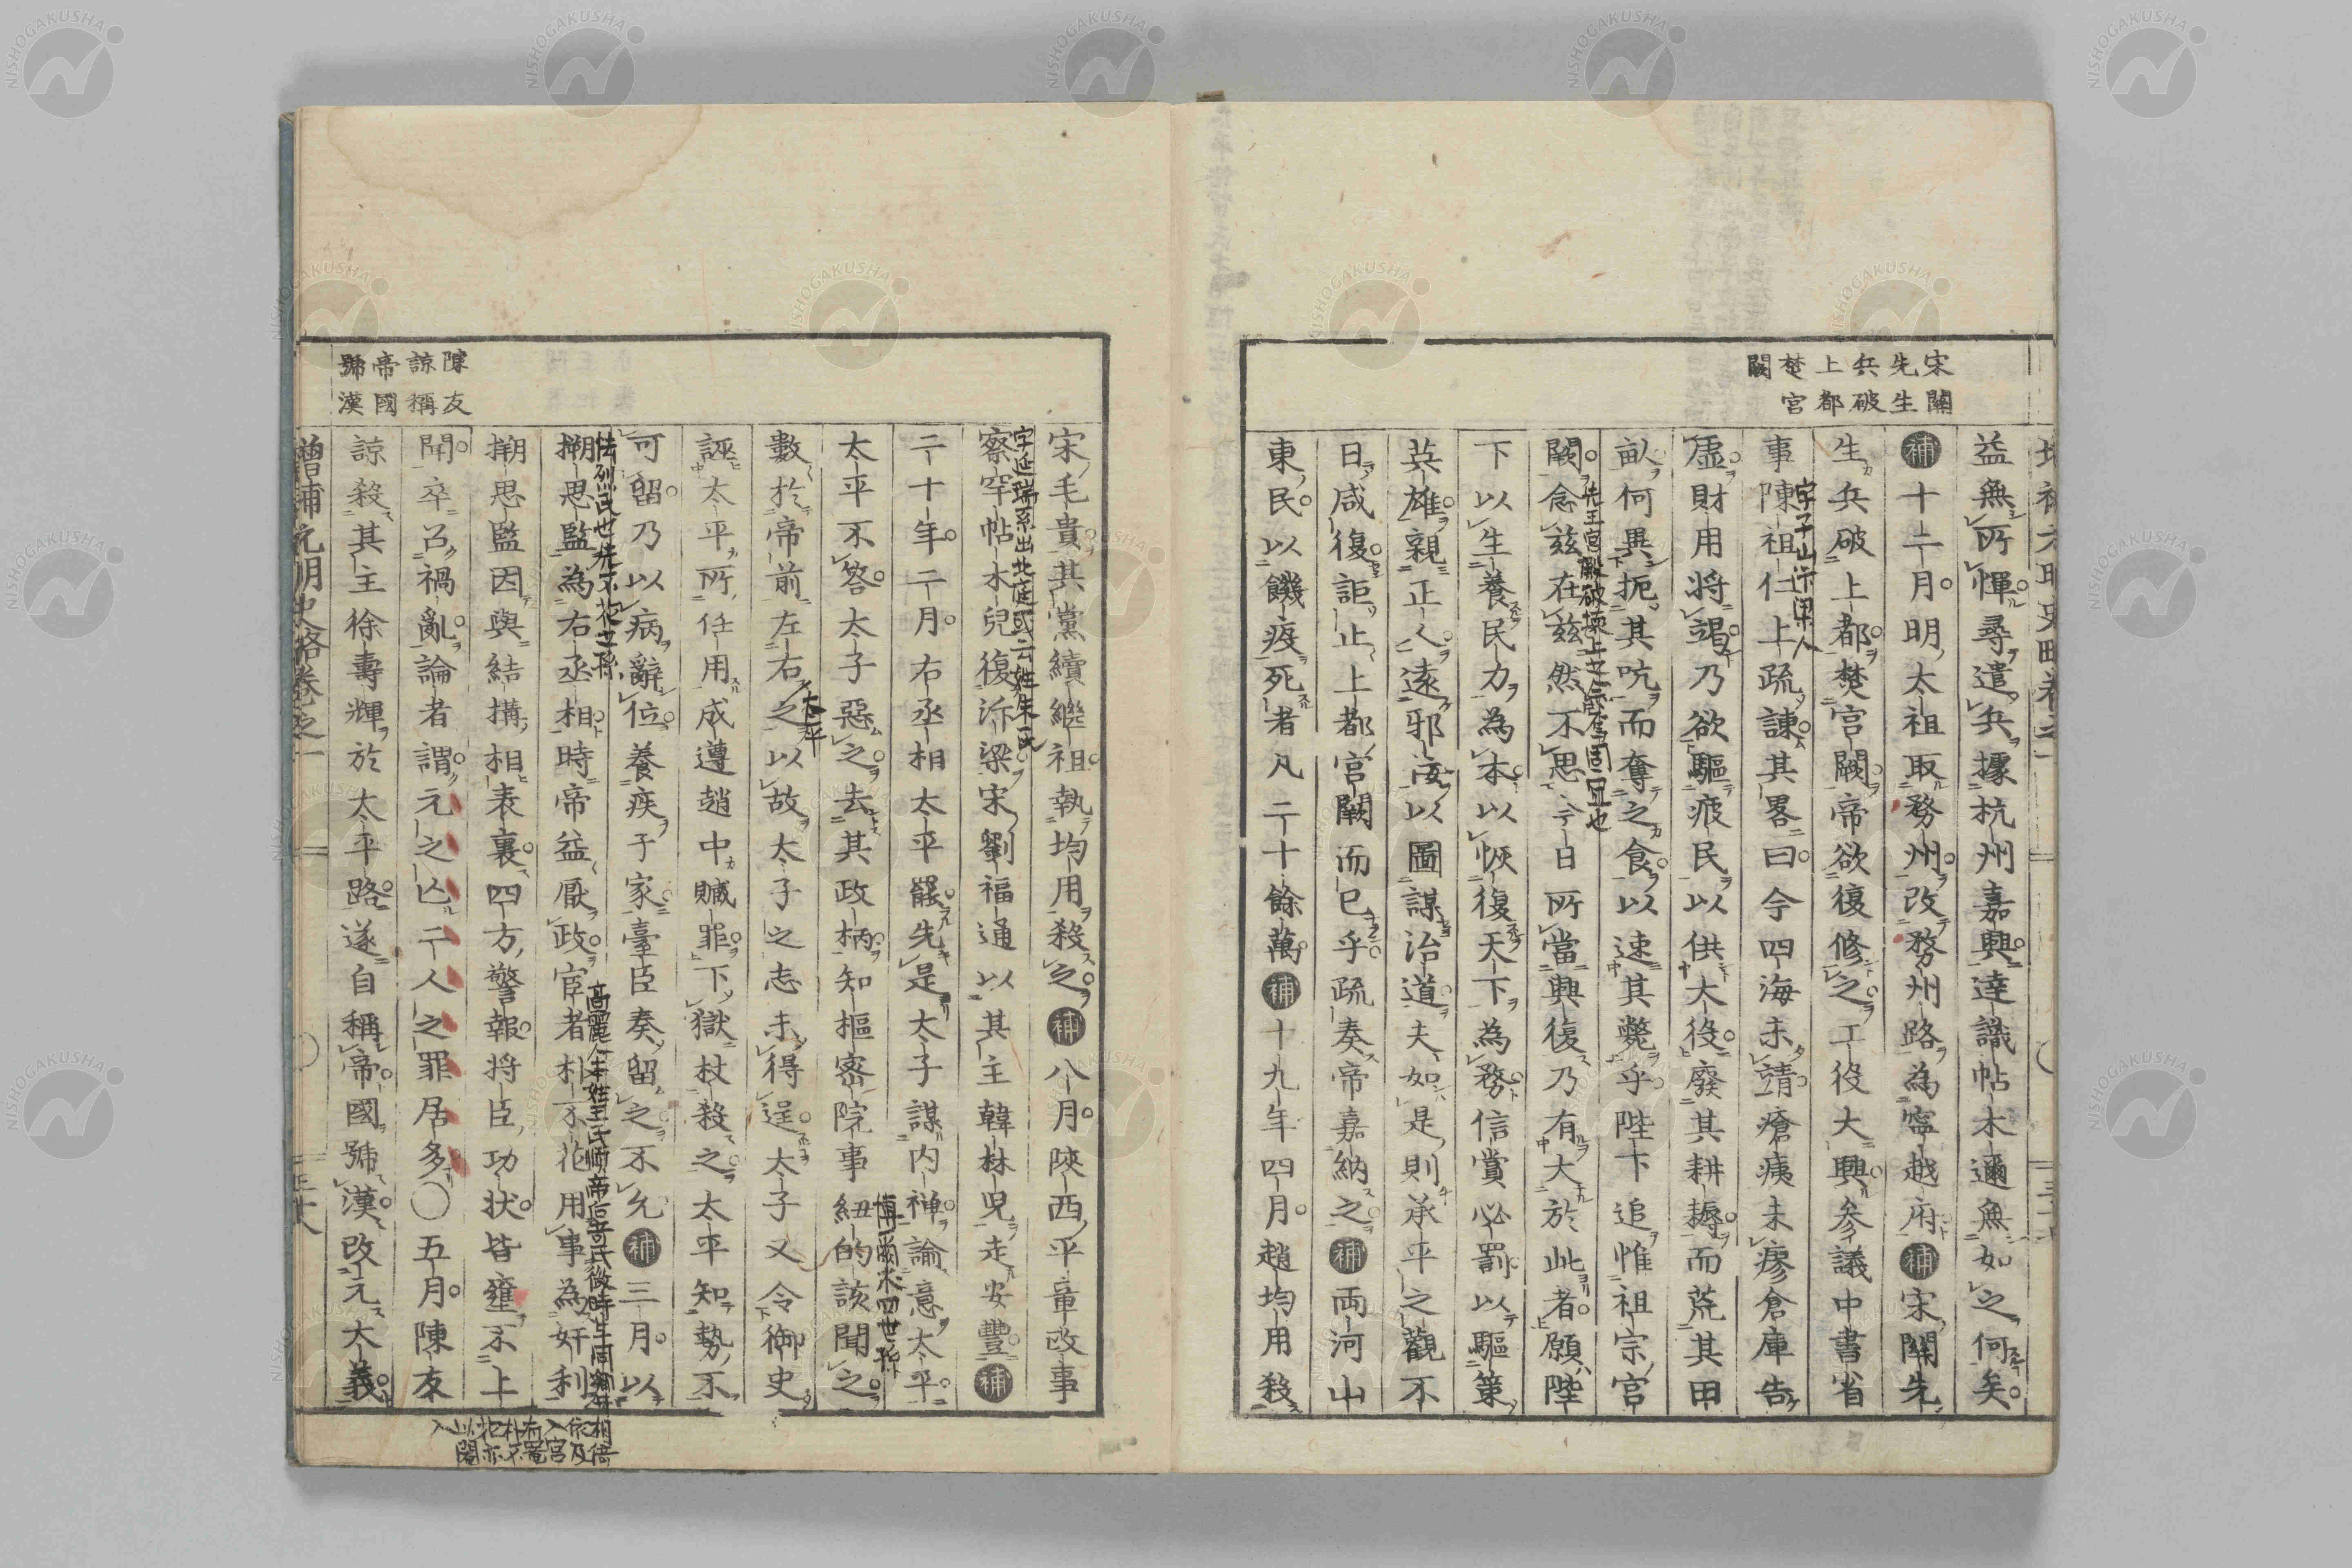 宋關
先生
兵破
上都
楚宮
闕
益無所憚尋遣兵據杭州嘉興達識帖木邇無如之何矣
補十二月明太祖取務州改務州路為寧越府補宋關先
生兵破上都焚宮闕帝欲復修之工役大興參議中書省
事陳祖仁上疏諫其畧曰今四海未靖瘡痍未瘳倉庫告
虛財用將竭乃欲驅疲民以供大役廢其耕耨而荒其田
畝何異扼其吭而奪之食以速其斃乎陛下追惟祖宗宮
闕念茲在茲然不思今日所當興復乃有大於此者願陛
下以生養民力為本以恢復天下為務信賞必罰以驅策
英雄親正人遠邪佞以圖謀治道夫如是則承平之觀不
日咸復詎止上都宮闕而已乎疏奏帝嘉納之補両河山
東民以饑疫死者凡二十餘萬補十九年四月趙均用殺
字子山汴梁人
陳友
諒稱
帝國
號漢
宋毛貴其黨續繼祖執均用殺之補八月陝西平章政事
字延瑞系出北庭或云姓朱氏
察罕帖木兒復汴梁宋劉福通以其主韓林兒走安豐補
二十年二月右丞相太平罷先是太子謀內禅諭意太平
博爾朮四世孫
太平不答太子惡之去其政柄知樞密院事紐的該聞之
數於帝前左右之以故太子之志未得逞太子又令御史
太平
誣太平所任用成遵趙中贓罪下獄杖殺之太平知勢不
可留乃以病辭位養疾于家臺臣奏留之不允補三月以
怯烈氏也先不花之孫
搠思監為右丞相時帝益厭政宦者朴不花用事為奸利
搠思監因與結搆相表裏四方警報將臣功状皆壅不上
聞卒召禍亂論者謂元之亡二人之罪居多〇五月陳友
諒殺其主徐壽輝於太平路遂自稱帝國號漢改元大義
增補元明史略卷之一